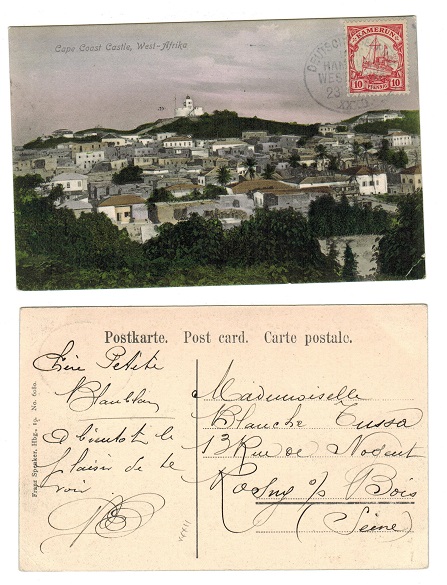 Cape Coast Castle, West-Afrika
KAMERUN
10 PFENNIG 10
DEUTSCH
HAM
WEST
23
XXII
Postkarte. Post card. Carte postale.
Franz Spenker, Hbg. 19. No. 6080.
Petite
Mademoiselle
Blanche Tussa
13 Rue de Nogent
Rosny s/s Bois
(Seine)
A bientôt le
plaisir de te
voir
XXII